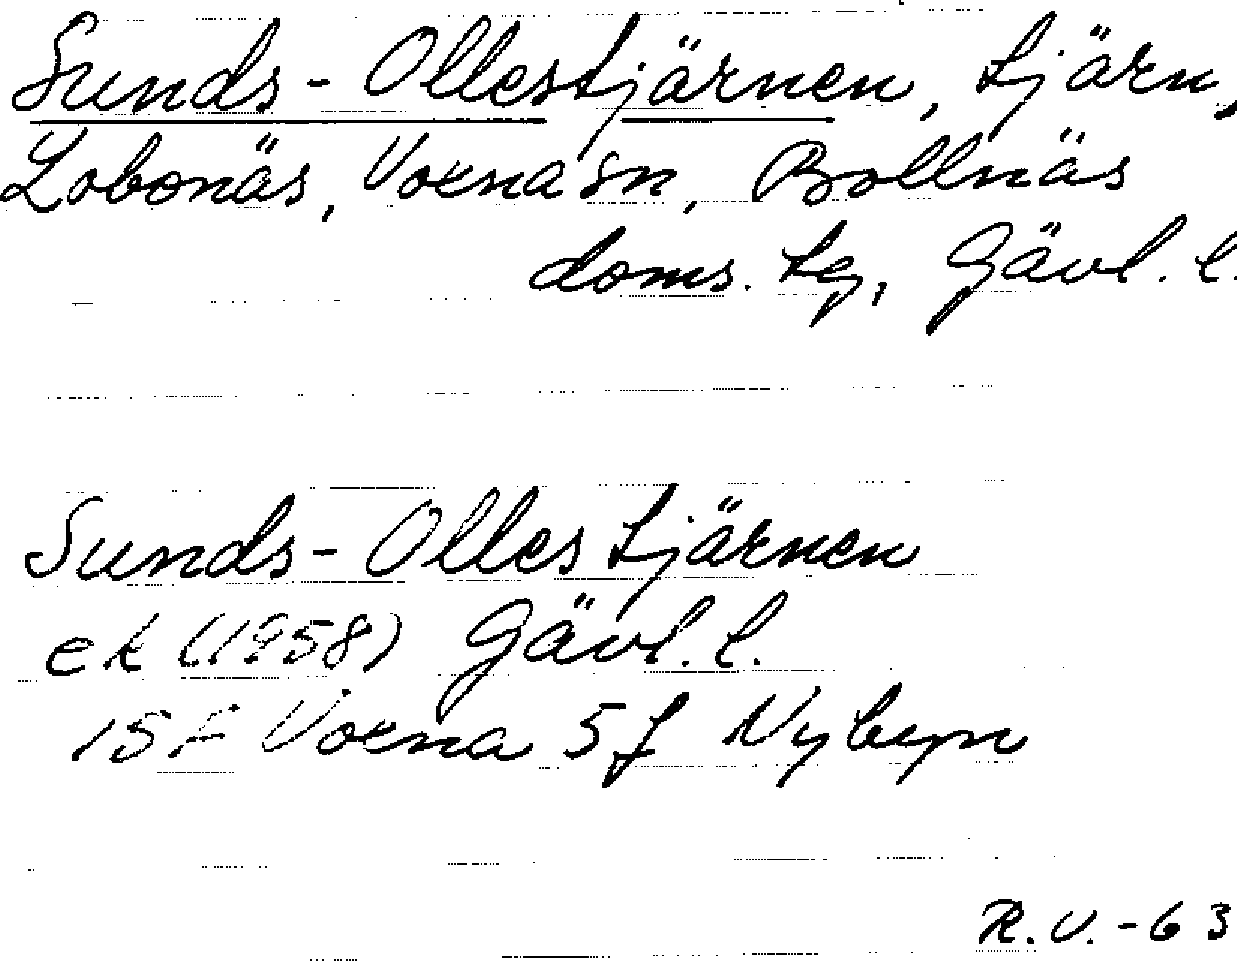 Sunds-Ollestjärnen, tjärn,
Lobonäs, Voxna sn, Bollnäs
doms. tg, Gävl. l.
Sunds-Ollestjärnen
ek (1958) Gävl. l.
15F Voxna 5f Nybyn
R.V.-63